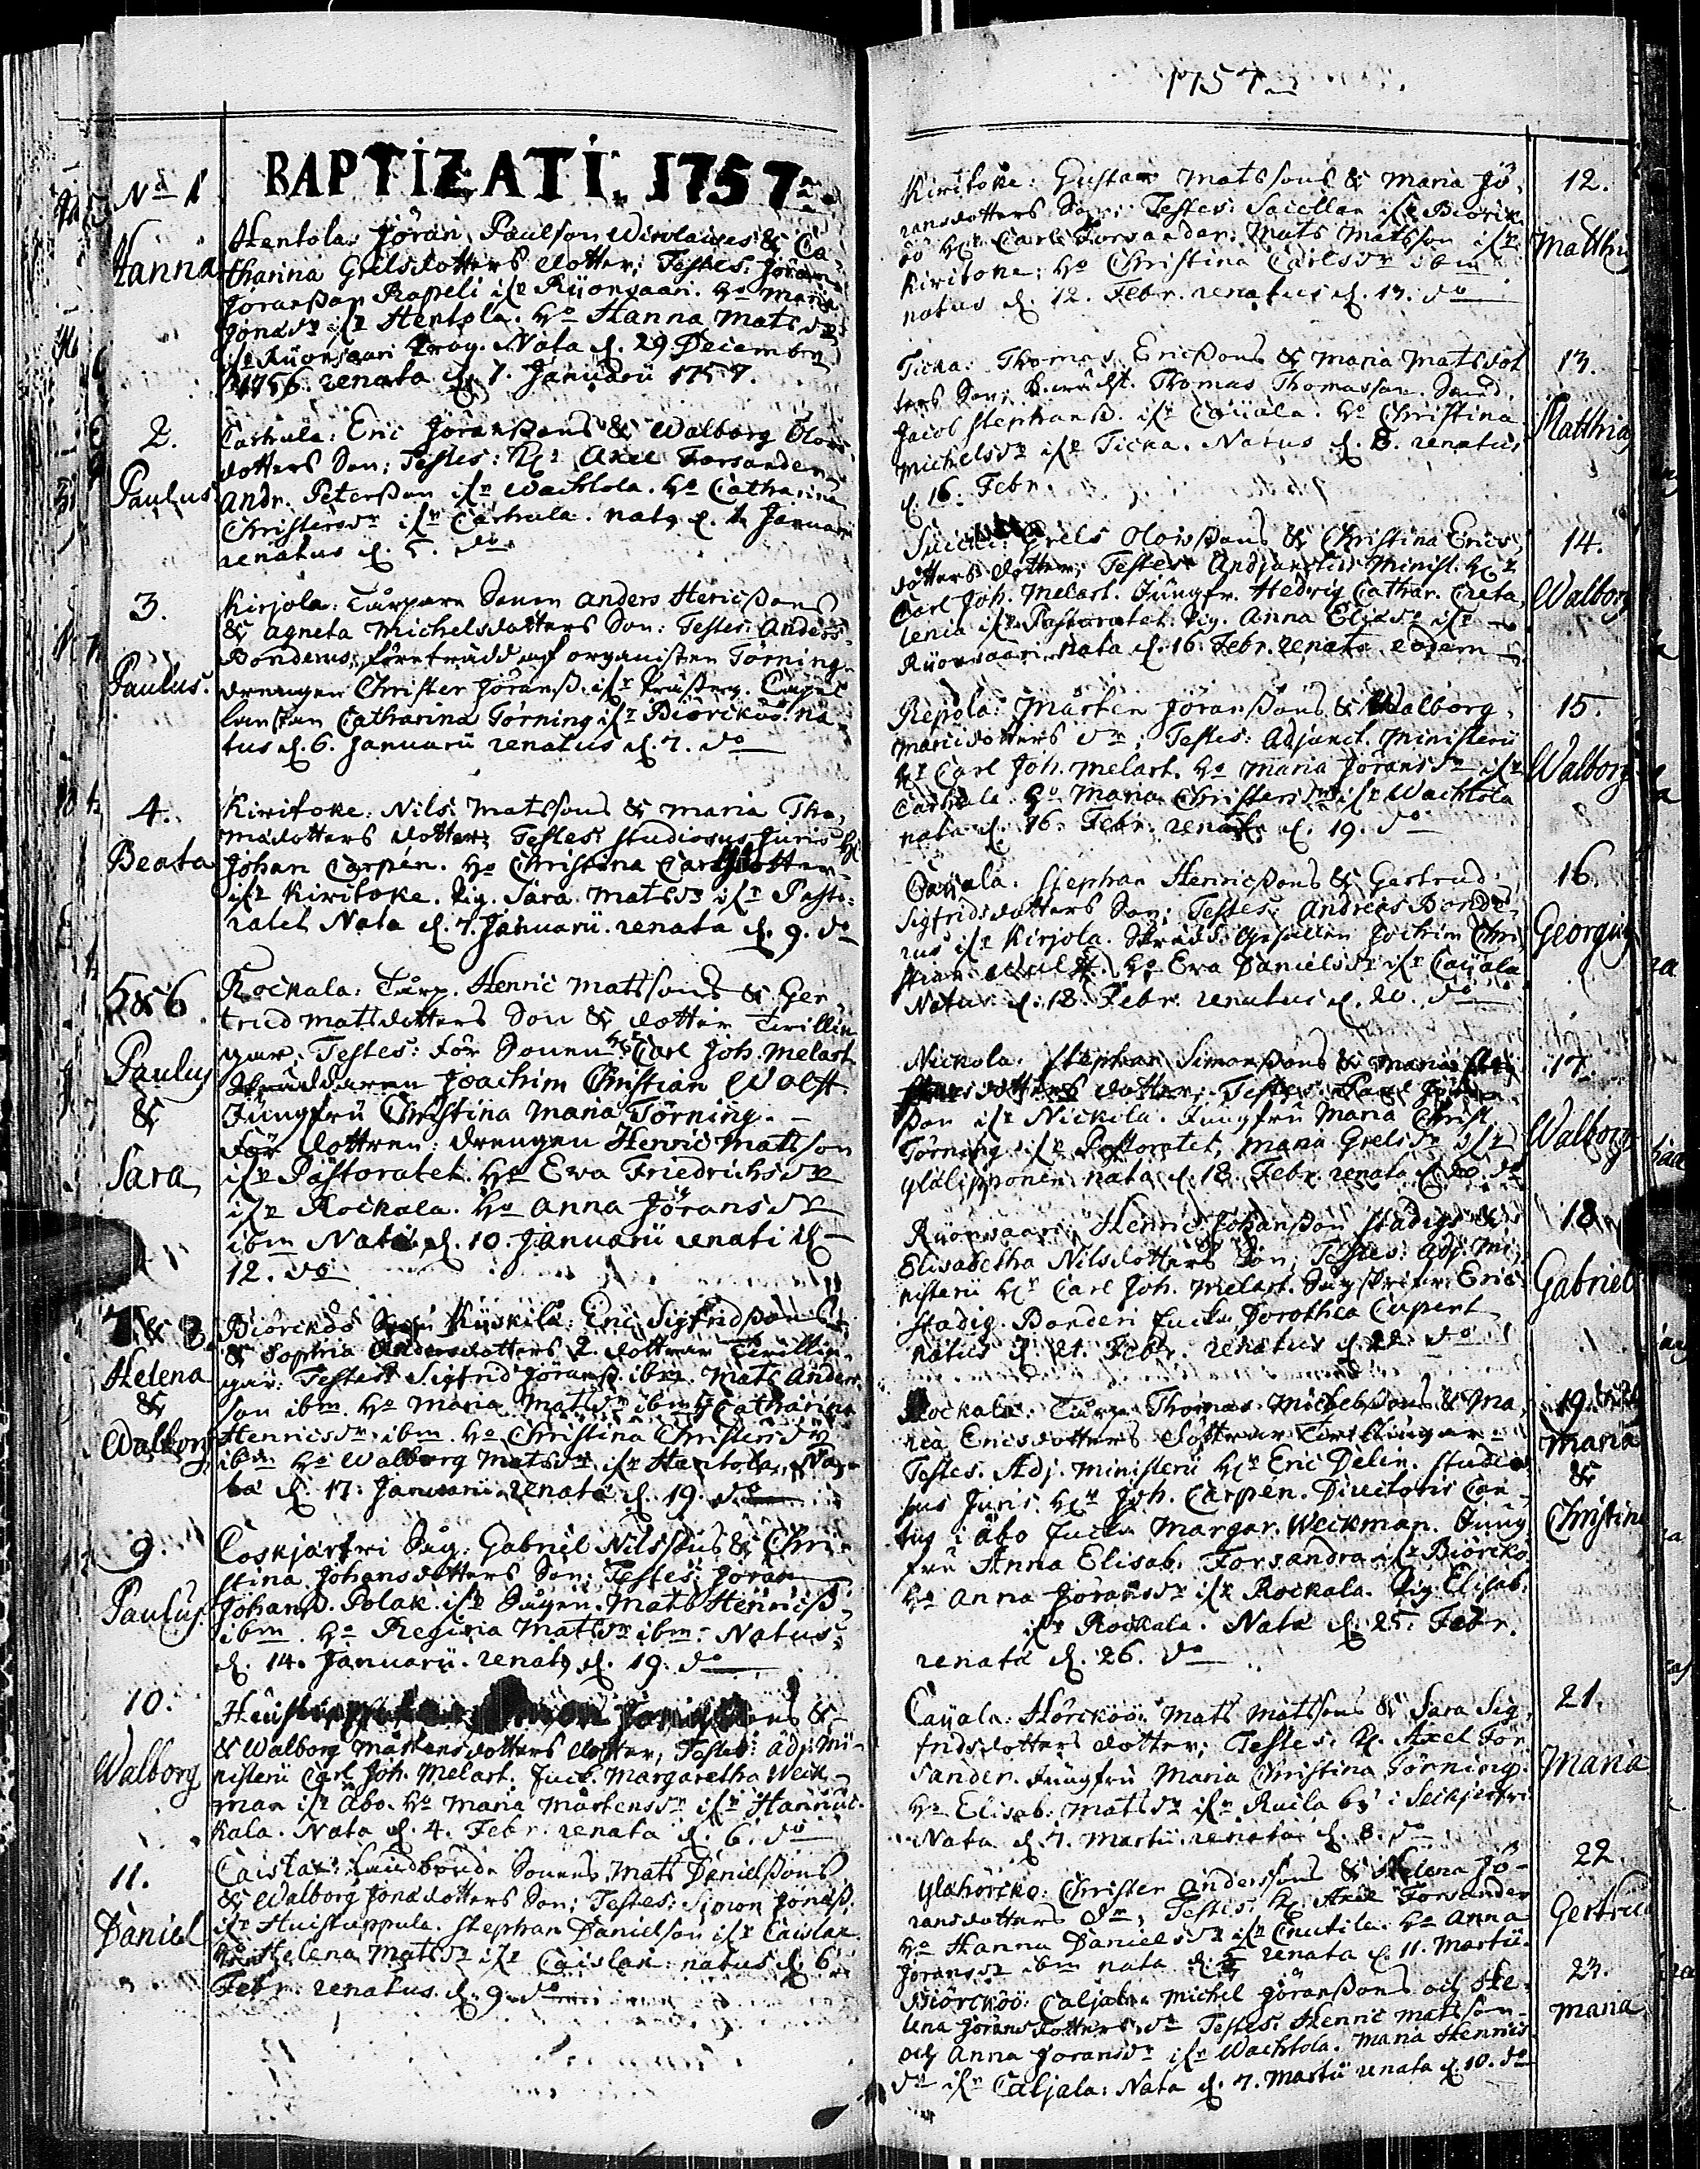 BAPTIZATI. 1757.
No 1
Hanna
Hentola: Jöran Paulson Wirolaines & Ca-
tharina Grelsdotters dotter; Testes: Jöran
Joransson Rapeli ifr Kuorsaari. Ho Maria
Jonædr ifr Hentola. Ho Hanna Matsdr
ifr Kuorsaari. Nata d. 29 Decembr
1756. renata d. 1. Januarii 1757.
2.
Paulus
Eric Jöranssons & Walborg Olofs-
dotters Son; Testes: Hr Axel Forsander
Andr. Petersson ifr Wachtola. Ho Catharina
Christersdr ifr. nat9 d. Januarii
renatus d. 5. do
3.
Paulus.
Kirjola: Anders Henricssons
& Agneta Michelsdotters Son: Testes: Anders
Bonderus, företrädd af organisten Törning
drengen Christer Jöranss. ifr
Catharina Törning ifr Biörkiöö na-
tus d. 6. Januarii renatus d. 7. do
4.
Beata
Kiritoke: Nils Matssons & Maria Tho-
mædotters dotter; Testes: Studiosus Juris Hr
Johan Carpén. Ho Christina Carlsdotter
ifr Kiritoke. Pig. Sara Matsdr ifr Pasto-
ratet Nata d. 7. Januarii. renata d. 9. do
5 & 6
Paulus
&
Sara
Rockala: Torp. Henric Matssons & Ger-
trud Matsdotters Son & dotter Tvillin-
gar. Testes: för Sonen Hr Carl Joh. Melart
Skräddaren Joachim Christian Wolft
Jungfru Christina Maria Törning.
För dottren: drengen Henric Matsson
ifr Pastoratet. Ho Eva Friedrichsdr
ifr Rockala. Ho Anna Jöransdr
ibm Nati d. 10. Januarii renati d.
12. do
7 & 8
Helena
&
Walborg
Biörckö Kuskila: Eric Sigfridssons
& Sophia Andersdotters 2 dottrar Tvillin-
gar: Testes: Sigfrid Jöranss. ibm. Mats Anders-
son ibm. Ho Maria Matsdr ibm Ho Catharina
Henricsdr ibm. Ho Christina Christersdr
ibm Ho Walborg Matsdr ifr Hentola. Na-
ta d. 17. Januarii renata d. 19. do
9.
Paulus.
Coskjärfvi Såg: Gabriel Nilssons & Chri-
stina Johansdotters Son: Testes: Jöran
Johanss. Polak ifr Sågen. Mats Henricss.
ibm. Ho Regina Matsdr ibm. Natus
d. 14. Januarii. renat9 d. 19. do
10.
Walborg
& Walborg Mårtensdotters dotter; Testes: Adj. Mi-
nisterii Carl Joh. Melart. Margaretha Weck-
man ifr Åbo. Ho Maria Mårtensdr ifr Hannuc-
kala. Nata d. 4. Febr. renata d. 6. do
11.
Daniel
Mats Danielssons
& Walborg Jonædotters Son; Testes: Simon Jonæss.
ifr Huistuppula. Stephan Danielson ifr
Ho Helena Matsdr ifr natus d. 6.
Febr. renatus. d. 9. do
1757.
12.
Matthias
Kiritoke: Gustav Matssons & Maria Jö-
ransdotters Son; Testes: Sacellan ifr Biörck-
öö Hr Carl Forsander: Mats Matsson ifr
Kiritoke; Ho Christina Carlsdr ibm
natus d. 12. Febr. renatus d. 13. do
13.
Matthias
Ticka: Thomas Ericssons & Maria Matsdot-
ters Son; Thomas Thomasson
Jacob Stephanss. ifr Cauala. Ho Christina
Michelsdr ifr Ticka. Natus d. 8. renatus
d. 16. Febr.
14.
Walborg
Grels Olofssons & Christina Erics-
dotters dotter; Testes Minist. Hr
Carl Joh. Melart. Jungfr. Hedvig Cathar. Creta-
lenia ifr Pastoratet. Pig. Anna Eliædr ifr
Kuorsaari nata d. 16. Febr. renata eodem
15.
Walborg
Repola: Mårten Jöranssons & Walborg
dotters dr; Testes: Adjunct. Ministerii
Hr Carl Joh. Melart. Ho Maria Jöransdr ifr
Ho Maria Christersdr ifr Wachtola
nata d. 16. Febr. renata d. 19. do
16.
Georgius
Cauala. Stephan Henricssons & Gertrud
Sigfridsdotters Son; Testes: Andreas Bonde-
rus ifr Kirjola. Jochim Chri-
stian Wulft. Ho Eva Danielsdr ifr Cauala
Natus d. 18. Febr. renatus d. 20. do
17.
Walborg
Nickola. Stephan Simonssons & Maria
dotters dotter; Testes:
son ifr Nickila. Jungfru Maria Christ.
Törning ifr Pastoratet, Maria Grelsdr ifr
nata d. 18. Febr. renata d. 20. do
18.
Gabriel
Kuorsaari. Henric Johansson Stadigs &
Elisabetha Nilsdotters Son; Testes: Adj. Mi-
nisterii Hr Carl Joh. Melart. Eric
Stadig. Dorothea Cupert
natus d. 21. Febr. renatus d. 22. do
19.
Maria
&
Christina
Rockala: Torp. Thomas Michelssons & Ma-
ria Ericsdotters Döttrar Tvillingar.
Testes. Adj. Ministerii Hr Eric Delin. Studio-
sus Juris Hr Joh. Carpén. Directoris Can-
tus i Åbo Margar. Weckman. Jung-
fru Anna Elisab. Forsandra ifr Biörckö
Ho Anna Jöransdr ifr Rockala. Pig. Elisab.
ifr Rockala. Nata d. 25. Febr.
renata d. 26. do
21.
Maria
Cauala: Hörcköö: Mats Matssons & Sara Sig-
fridsdotters dotter; Testes: Hr. Axel For-
sander. Jungfru Maria Christina Törning.
Ho Elisab. Matsdr ifr
Nata d. 7. Martii renata d. 8. do
22.
Gertrud
Ylähörckö: Christer Anderssons & Helena Jö-
ransdotters dr; Testes: Hr Axel Forsander
Ho Hanna Danielsdr ifr Ho Anna
Jöransdr ibm nata d. renata d. 11. Martii.
23.
Maria
Biörcköö: Caljala Michel Jöranssons och He-
lena Jöransdotters dr Testes: Henric Matsson
och Anna Joransdr ifr Wachtola. Maria Henrics-
dr ifr Caljala: Nata d. 7. Martii renata d. 10. do